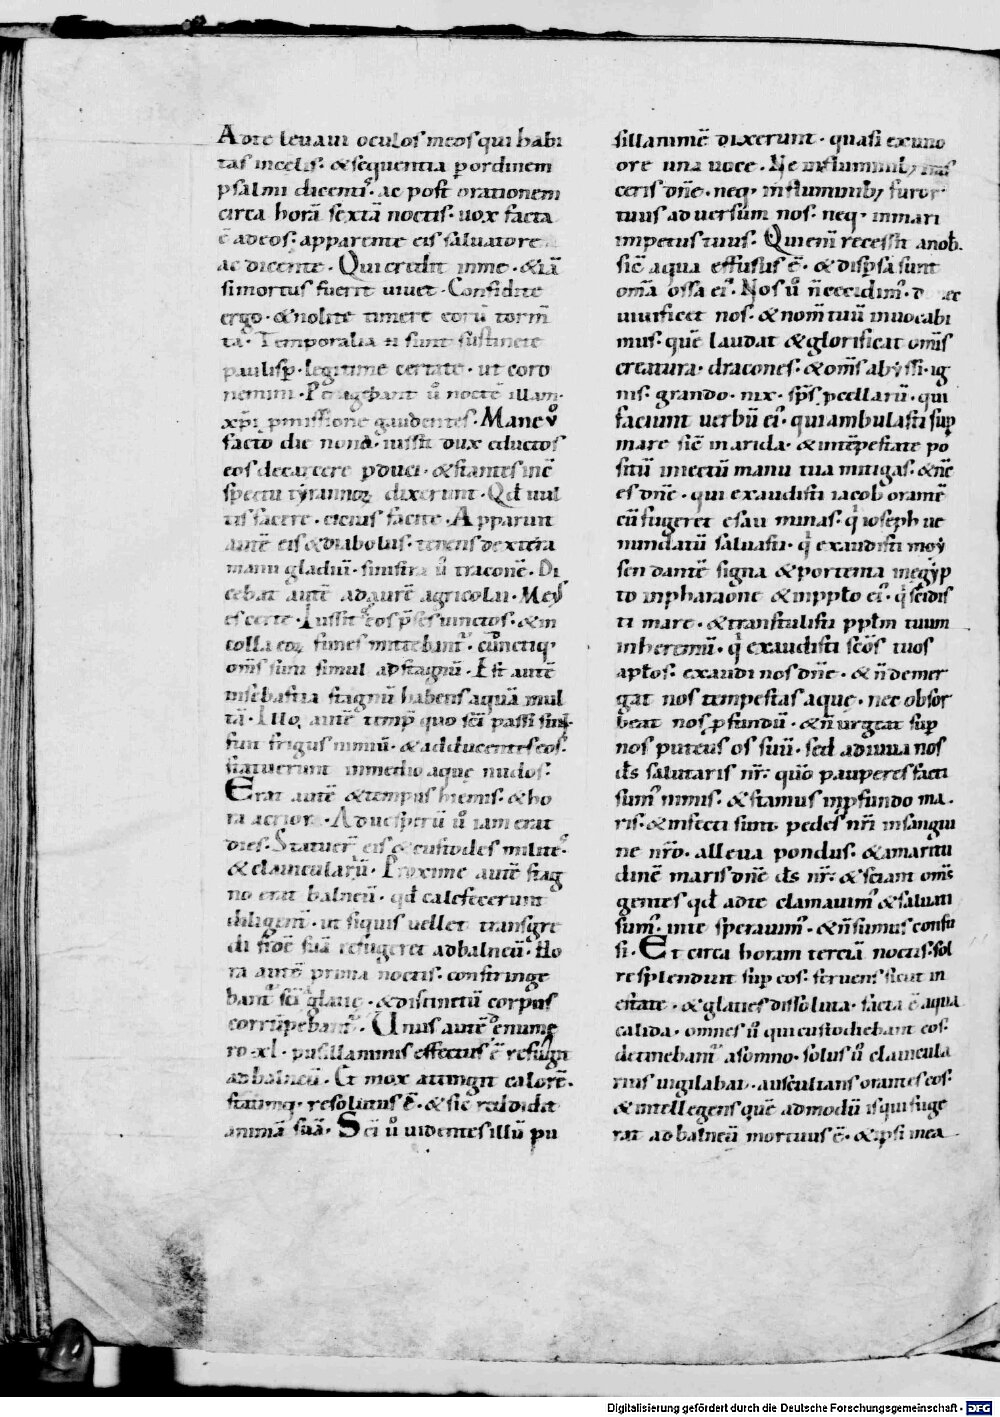 Adte levavi oculos meos qui habi
tas incelis· &sequentia pordinem
psalmi dicentis· ac post orationem
circa horā sextā noctis· vox facta
ē adeos· apparente eis salvatore
ac dicente· Qui credit inme· &iā
simortuus fuerit vivet· Confidite
ergo· &nolite timere eorū torm̄
ta· Temporalia sunt sustinete
paulisp̄· legitime certate· ut coro
nemini· Peragebant ů noctē illam·
xp̄i pmissione gaudentes· Mane ů
facto die nona· iussit dux eductos
eos decarcere pduci· &stantes inc̄
spectu tyranno℞ dixerunt· Qd̄ vul
tis facere· cicius facite· Apparuit
autē eis &diabolus· tenens dextera
manu gladiū· sinistra ů draconē· Di
cebat autē ad aurē agricolai· Meus
es certe· Iussit eos p̄ses vinctos· &in
colla eo℞ funes mittebant᷑· cūctiq·
om̄s simi simul adstagnū· Est autē
insebastia stagnū habens aquā mul
tā· Illo autē temp̄ quo sc̄i passi sunt
fuit frigus nimiū· &adducentes eos·
statuerunt inmedio aquę nudos·
Erat autē &tempus hiemis· &ho
ra acrior· Aduesperū ů iam erat
dies· Statuer̄ eis &custodes milite᷒·
&claviculariū· Proxime autē stag
no erat balneū· qd̄ calefecerunt
diligent᷑· ut siquis vellet transgre
di fidē suā refugeret adbalneū· Ho
ra autē prima noctis· constringe
bant᷑ sc̄i aglatie· &distinctū corpus
corrūpebant᷑· Unus autē enume
ro ·xl· pusillanimis effectus ē refugit
adbalneū· Et mox attingit calorē·
statimq· resolutus ē· &sic reddidit
animā suā· Sc̄i ů videntes illū pu
sillanimē dixerunt· quasi exuno
ore una voce· Ne influminib; iras
ceris dn̄e· neq· influminib; furor
tuus adversum nos· neq· inmari
impetus tuus· Qui enī recessit anob·
sic̄ aqua effusus ē· &disp̄sa sunt
om̄a ossa ei᷒· Nos ů n̄ recedim᷒· donec
vivificet nos· &nom̄ tuū invocabi
mus· quē laudat &glorificat om̄is
creatura· dracones· &om̄s abyssi· ig
nis· grando· nix· sp̄s pcellarū· qui
faciunt verbū ei᷒· qui ambulasti sup̄
mare sic̄ inarida· &intēpestate po
sitū inventū manu tua mitigas· &nc̄
es dn̄e· qui exaudisti iacob oranē
cū fugeret esau minas· q̄ ioseph ve
nundatū salvasti· q̄ exaudisti moy
sen dantē signa &portenta inegyp
to inpharaone &inpp̄lo ei᷒· q̄ scidis
ti mare· &transtulisti pp̄lm tuum
inheremū· q̄ exaudisti sc̄os tuos
aptōs· exaudi nos dn̄e· &n̄ demer
gat nos tempestas aquę· nec obsor
beat nos pfundū· &n̄ urgeat sup̄
nos puteus os suū· sed adiuva nos
dš salutaris nr̄· quō pauperes facti
sum᷒ nimis· &stamus inpfundo ma·
ris· &infecti sunt pedes nr̄i insangui
ne nr̄o· alleva pondus· &amaritu
dinē maris dn̄e dš nr̄· &sciant om̄s
gentes qd̄ adte clamavim᷒ &salvati
sum᷒· inte speravim᷒· &n̄sumus confu
si· Et circa horam terciā noctis· sol
resplenduit sup̄ eos· fervens sicut in
estate· &glaties dissoluta· facta ē aqua
calida· omnes ů qui custodiebant eos·
detinebant᷑ asomno· solus ů clavicula
rius vigilabat· auscultans orantes eos·
&intellegens quē admodū isqui fuge
rat adbalneū mortuus ē· &ipsi inea
Digitalisierung gefördert durch die Deutsche Forschungsgemeinschaft - DFG